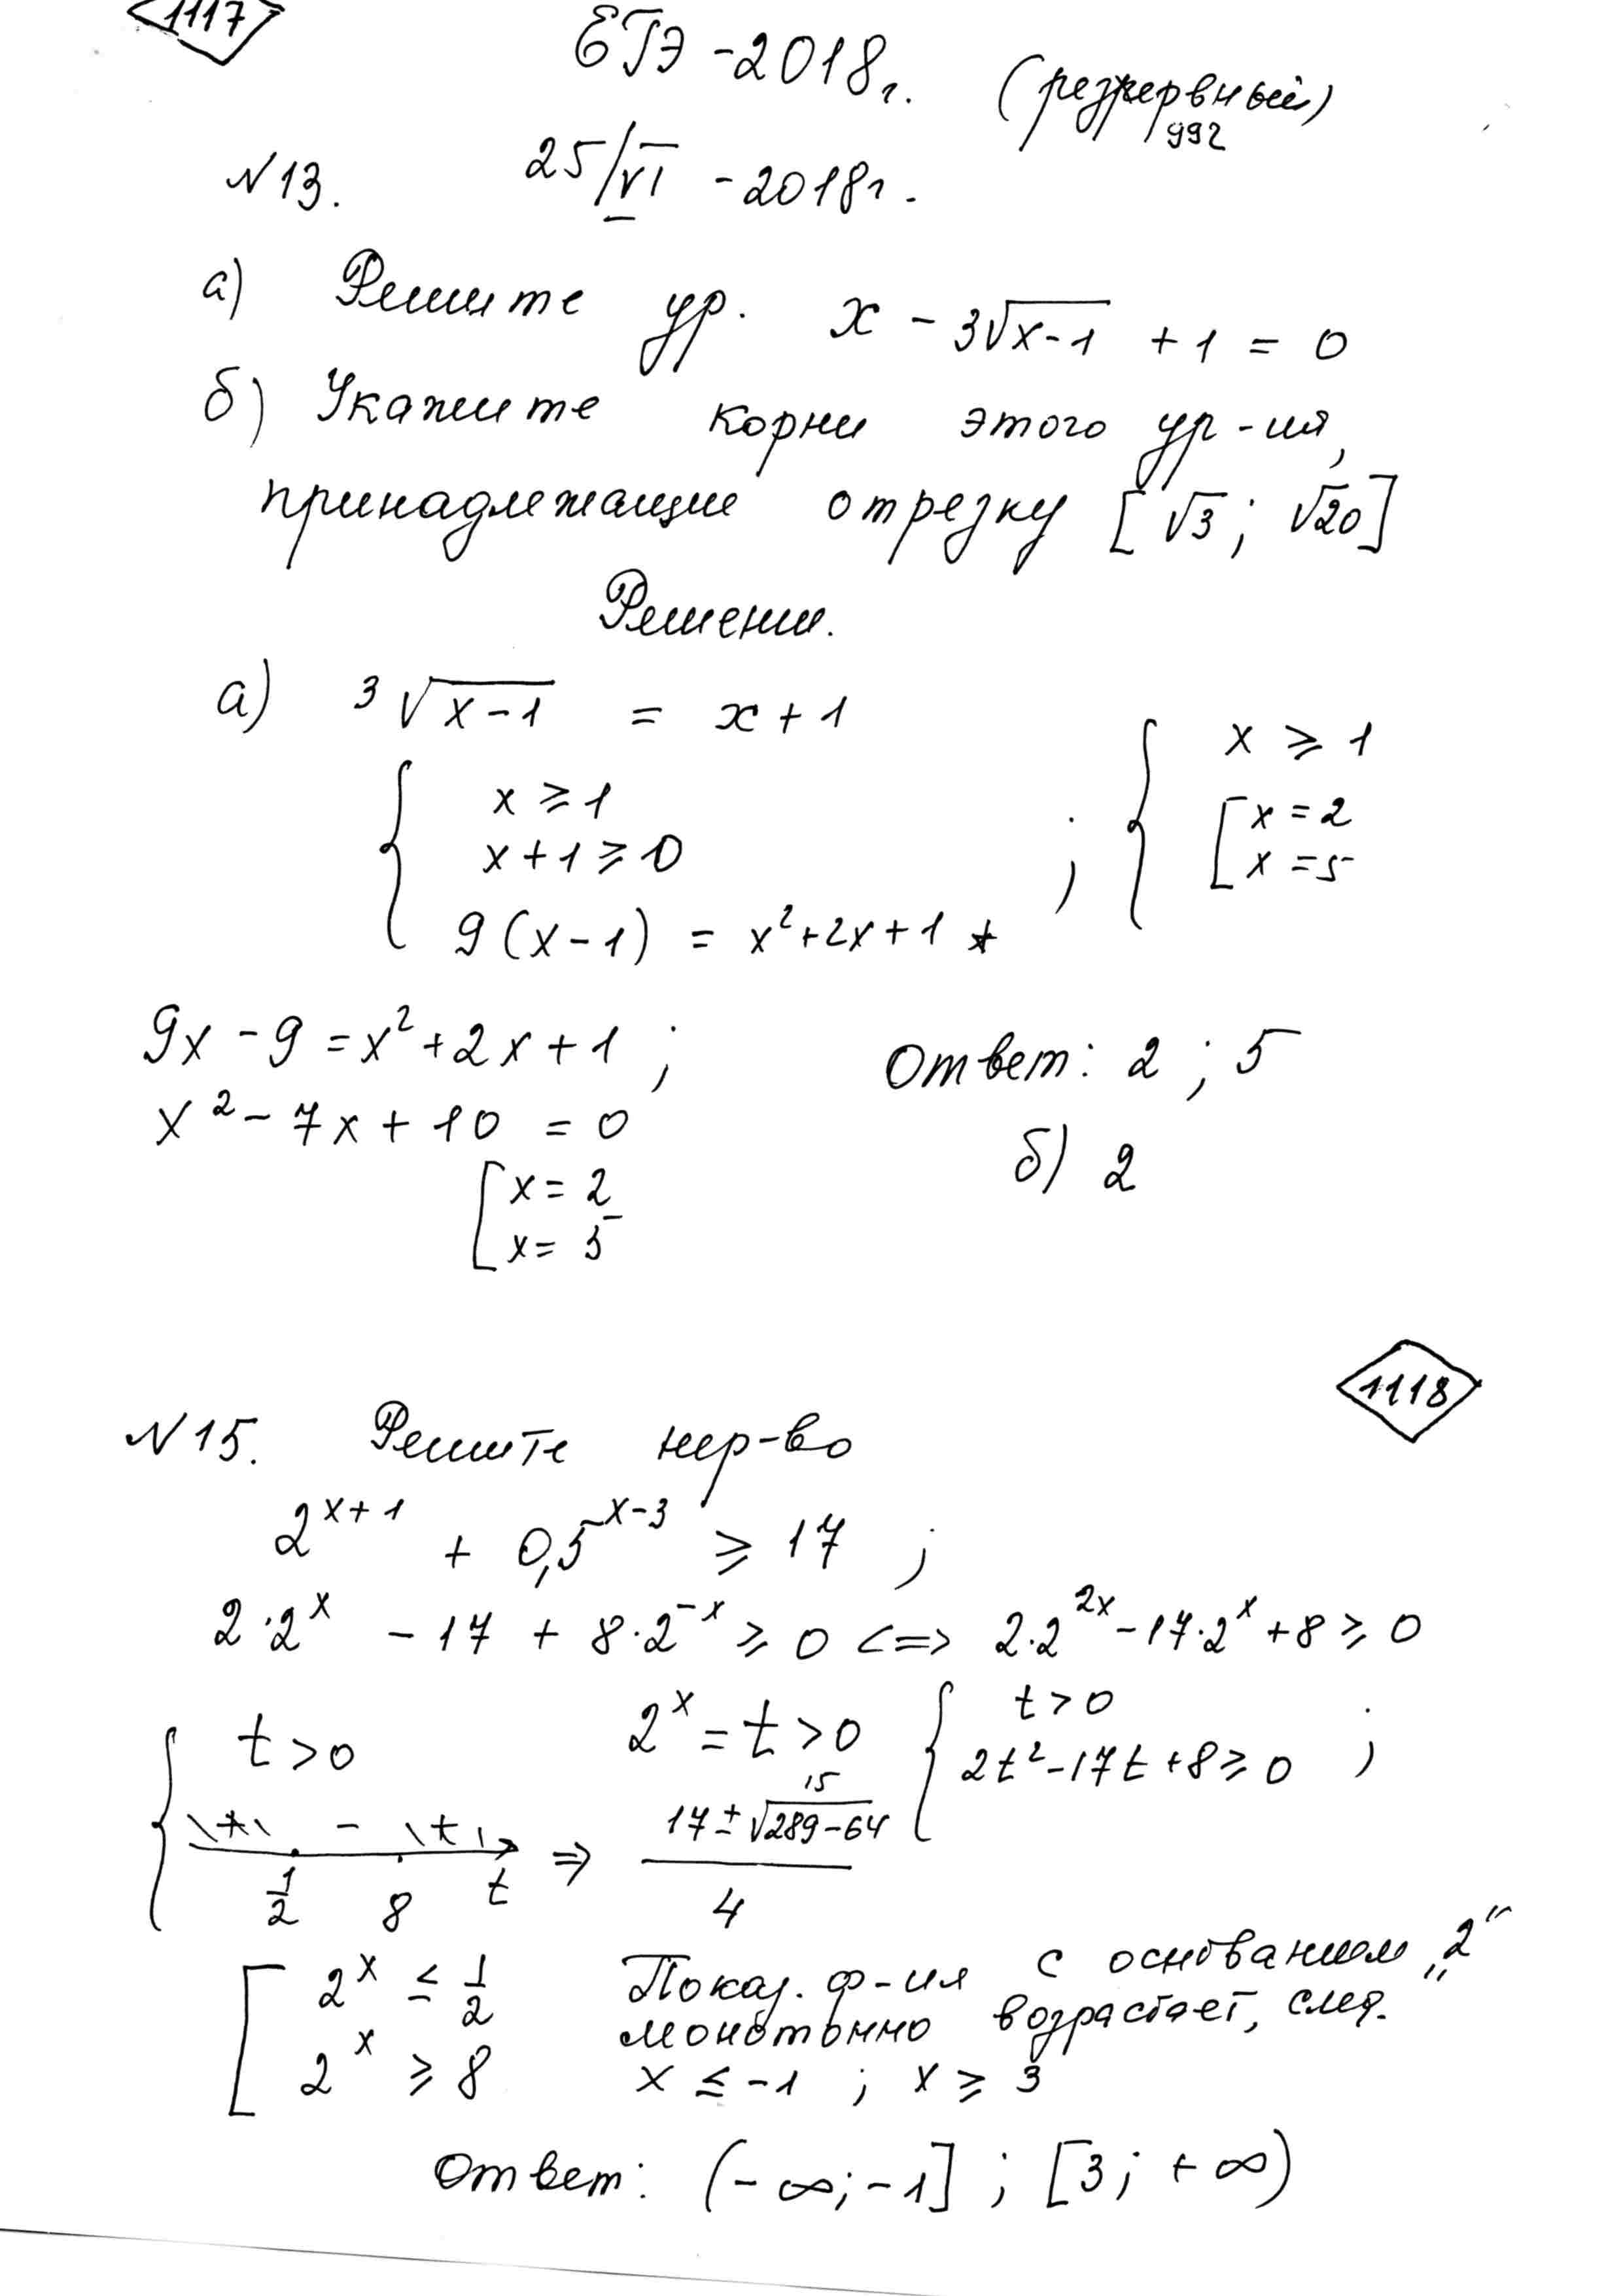 1117
ЕГЭ - 2018г. (резервный)
992
N13. 25/VI - 2018г.
а) Решите ур. x - 3√(x-1) + 1 = 0
б) Укажите корни этого ур-ия,
принадлежащие отрезку [√3; √20]
Решени.
а) 3√(x-1) = x+1
{ x ≥ 1
x+1 ≥ 0
9(x-1) = x²+2x+1 *
; { x ≥ 1
[ x = 2
x = 5
9x - 9 = x² + 2x + 1 ;
x² - 7x + 10 = 0
[ x = 2
x = 5
Ответ: 2 ; 5
б) 2
1118
N15. Решите нер-во
2^(x+1) + 0,5^(x-3) ≥ 17 ;
2·2^x - 17 + 8·2^(-x) ≥ 0 <=> 2·2^(2x) - 17·2^x + 8 ≥ 0
2^x = t > 0 { t > 0
2t² - 17t + 8 ≥ 0 ;
{ t > 0
+ - +
1/2 8 t
=> (17 ± √(289-64))/4
15
[ 2^x ≤ 1/2
2^x ≥ 8
Показ. ф-ия с основанием „2“
монотонно возрастает, след.
x ≤ -1 ; x ≥ 3
Ответ: (-∞; -1] ; [3; +∞)